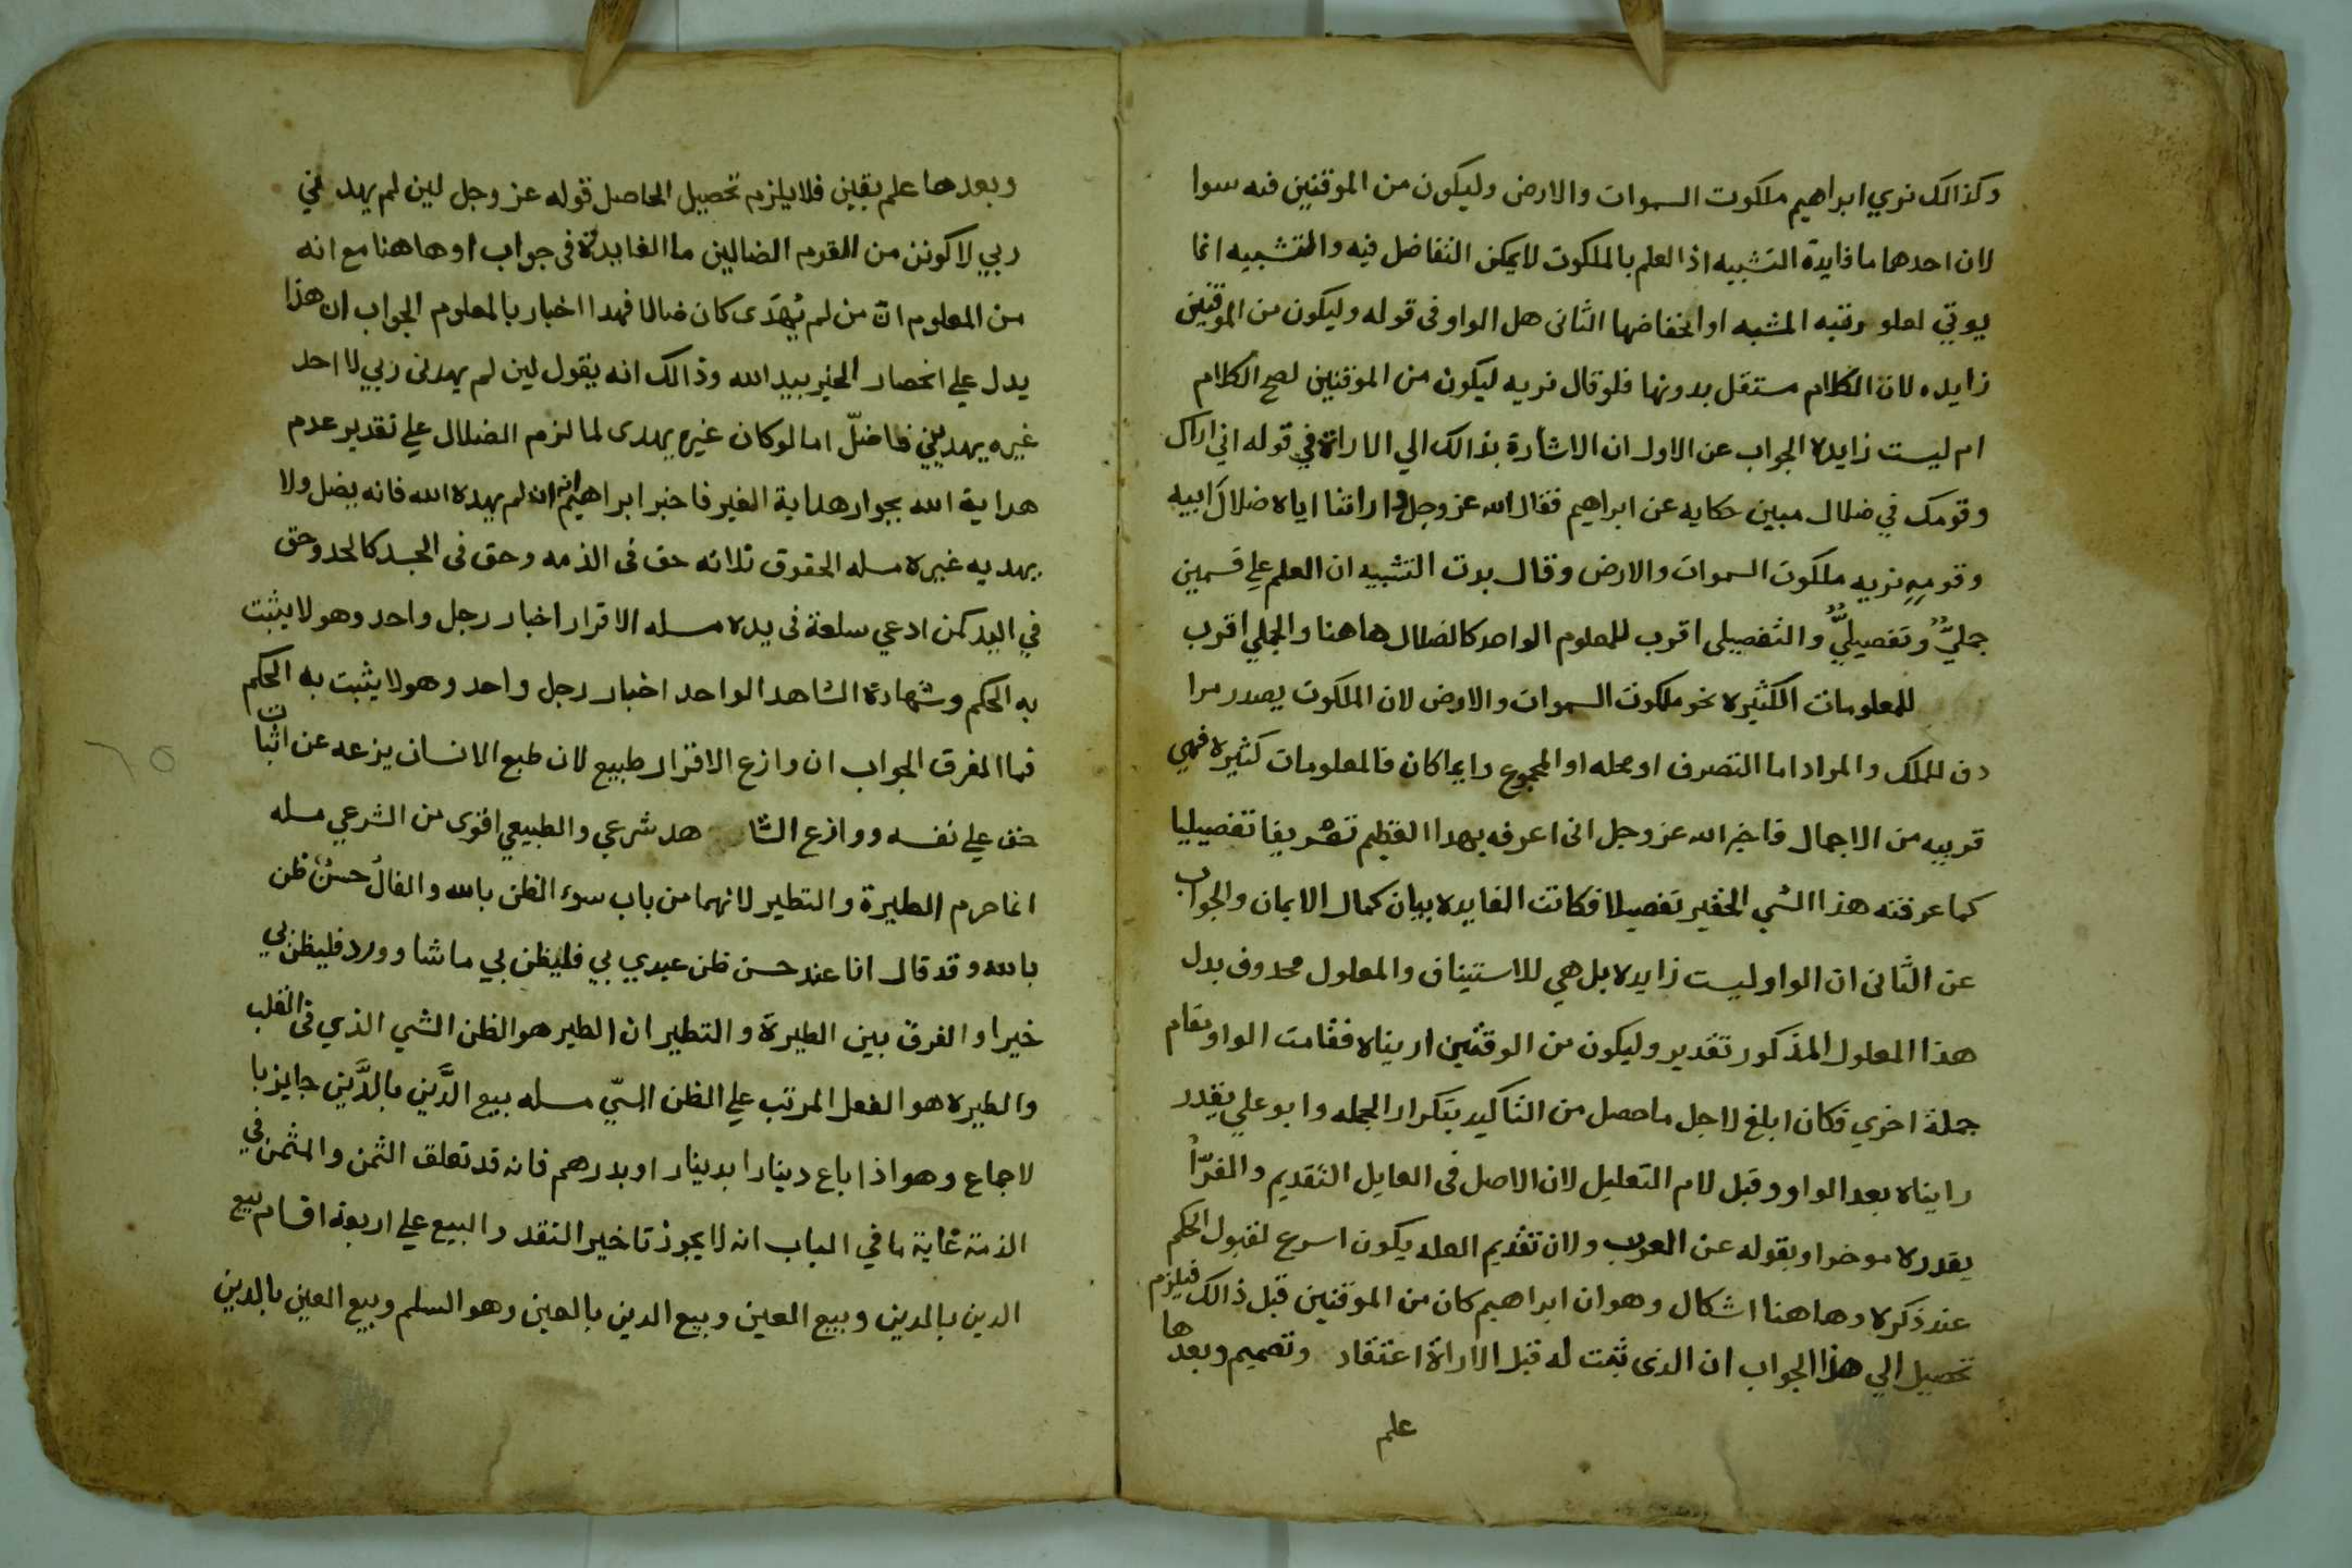 وكذالك نري ابراهيم ملكوت السموات والارض وليكون من الموقنين فيه سوا
لان احدهما ما فايدة التشبيه اذ العلم بالملكوت لا يمكن التفاضل فيه والتشبيه انما
يوتي لعلو رتبه المشبه او انخفاضها الثانى هل الواو فى قوله وليكون من الموقنين
زايده لان الكلام مستقل بدونها فلو قال نريه ليكون من الموقنين لصح الكلام
ام ليست زايده الجواب عن الاول ان الاشارة بذالك الي الاراة في قوله اني اراك
وقومك في ضلال مبين حكايه عن ابراهيم فقال الله عز وجل وارانتنا اياه ضلال ابيه
وقومهِ نريه ملكوت السموات والارض وقال بدت التشبيه ان العلم علي قسمين
جمليٌّ وتفصيليٌّ والتفصيلى اقرب للمعلوم الواحد كالضلال هاهنا والجملي اقرب
للمعلومات الكثيره نحو ملكوت السموات والارض لان الملكوت يصدر مرا
دف للملك والمراد اما التصرف او محله او المجموع وايما كان فالمعلومات كثيره فهي
قريبه من الاجمال فاخبر الله عز وجل انى اعرفه بهدا العظيم تعريفا تفصيليا
كما عرفته هذا الشي الحقير تفصيلا فكانت الفايده بيان كمال الايمان والجواب
عن الثانى ان الواو ليست زايده بل هي للاستيناف والمعلول محدوف بدل
هذا المعلول المذكور تقدير وليكون من الوقنين اريناه فقامت الواو مقام
جملة اخري فكان ابلغ لاجل ما حصل من التاكيد بتكرار الجمله وابو علي يقدر
رايناه بعد الواو وقبل لام التعليل لان الاصل فى العايل التقديم والفرّا
يقدره موخرا وبقوله عن العرب ولان تقديم العله يكون اسرع لقبول الحكم
عند ذكره وهاهنا اشكال وهو ان ابراهيم كان من الموقنين قبل ذالك فيلزم
تحصيل الي هذا الجواب ان الذى ثبت له قبل الاراة اعتقاد وتصميم وبعدها
علم
وبعدها علم يقين فلا يلزم تحصيل الحاصل قوله عز وجل لين لم يهدني
ربي لاكونن من القوم الضالين ما الفايدة فى جواب او هاهنا مع انه
من المعلوم انّ من لم يُهدَى كان ضالا فهدا اخبار بالمعلوم الجواب ان هذا
يدل علي انحصار الخير بيد الله وذالك انه يقول لين لم يهدنى ربي لا احد
غيره يهديني فاضلّ اما لو كان غيره يهدى لما لزم الضلال علي تقدير عدم
هداية الله بجواز هداية الغير فاخبر ابراهيم انه ان لم يهده الله فانه يضل ولا
يهديه غيره مسله الحقوق ثلاثه حق فى الذمه وحق فى الجسد كالحد وحق
في اليد كمن ادعي سلعة فى يده مسله الاقرار اخبار رجل واحد وهو لا يثبت
به الحكم وشهادة الشاهد الواحد اخبار رجل واحد وهو لا يثبت به الحكم
فما المفرق الجواب ان وازع الاقرار طبيع لان طبع الانسان يزعه عن اثبات
حق علي نفسه ووازع الشاهد شرعي والطبيعي اقوى من الشرعي مسله
انما حرم الطيرة والتطير لانهما من باب سوء الظن بالله والفالُ حسنُ ظن
بالله وقد قال انا عند حسن ظن عبدي بي فليظن بي ما شا وورد فليظن بي
خيرا والفرق بين الطيرة والتطير ان الطير هو الظن الشي الذي فى القلب
والطيره هو الفعل المرتب علي الظن السيّ مسله بيع الدَّين بالدَّين جايز با
لاجماع وهو اذا باع دينارا بدينار او بدرهم فانه قد تعلق الثمن والمثمن في
الذمة غاية ما في الباب انه لا يجوز تاخير النقد والبيع علي اربعة اقسام بيع
الدين بالدين وبيع العين وبيع الدين بالعين وهو السلم وبيع العين بالدين
٦٥